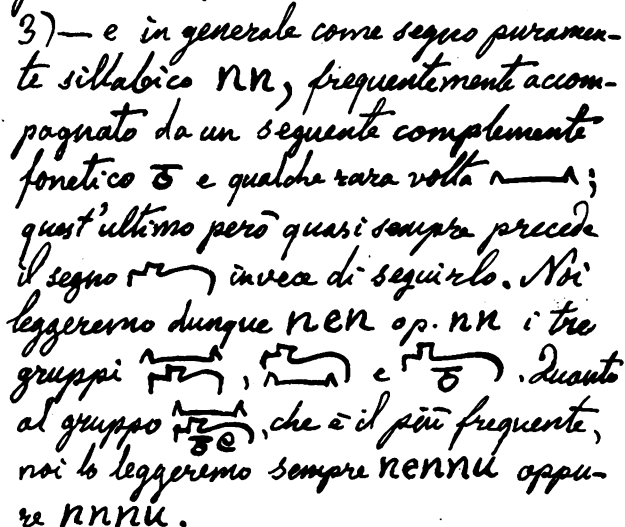 3)— e in generale come segno puramen-
te sillabico nn, frequentemente accom-
pagnato da un seguente complemente
fonetico 𓏌 e qualche rara volta 𓈖;
quest'ultimo però quasi sempre precede
il segno invece di seguirlo. Noi
leggeremo dunque nen op. nn i tre
gruppi , e . Quanto
al gruppo , che è il più frequente,
noi lo leggeremo sempre nennu oppu-
re nnnu.